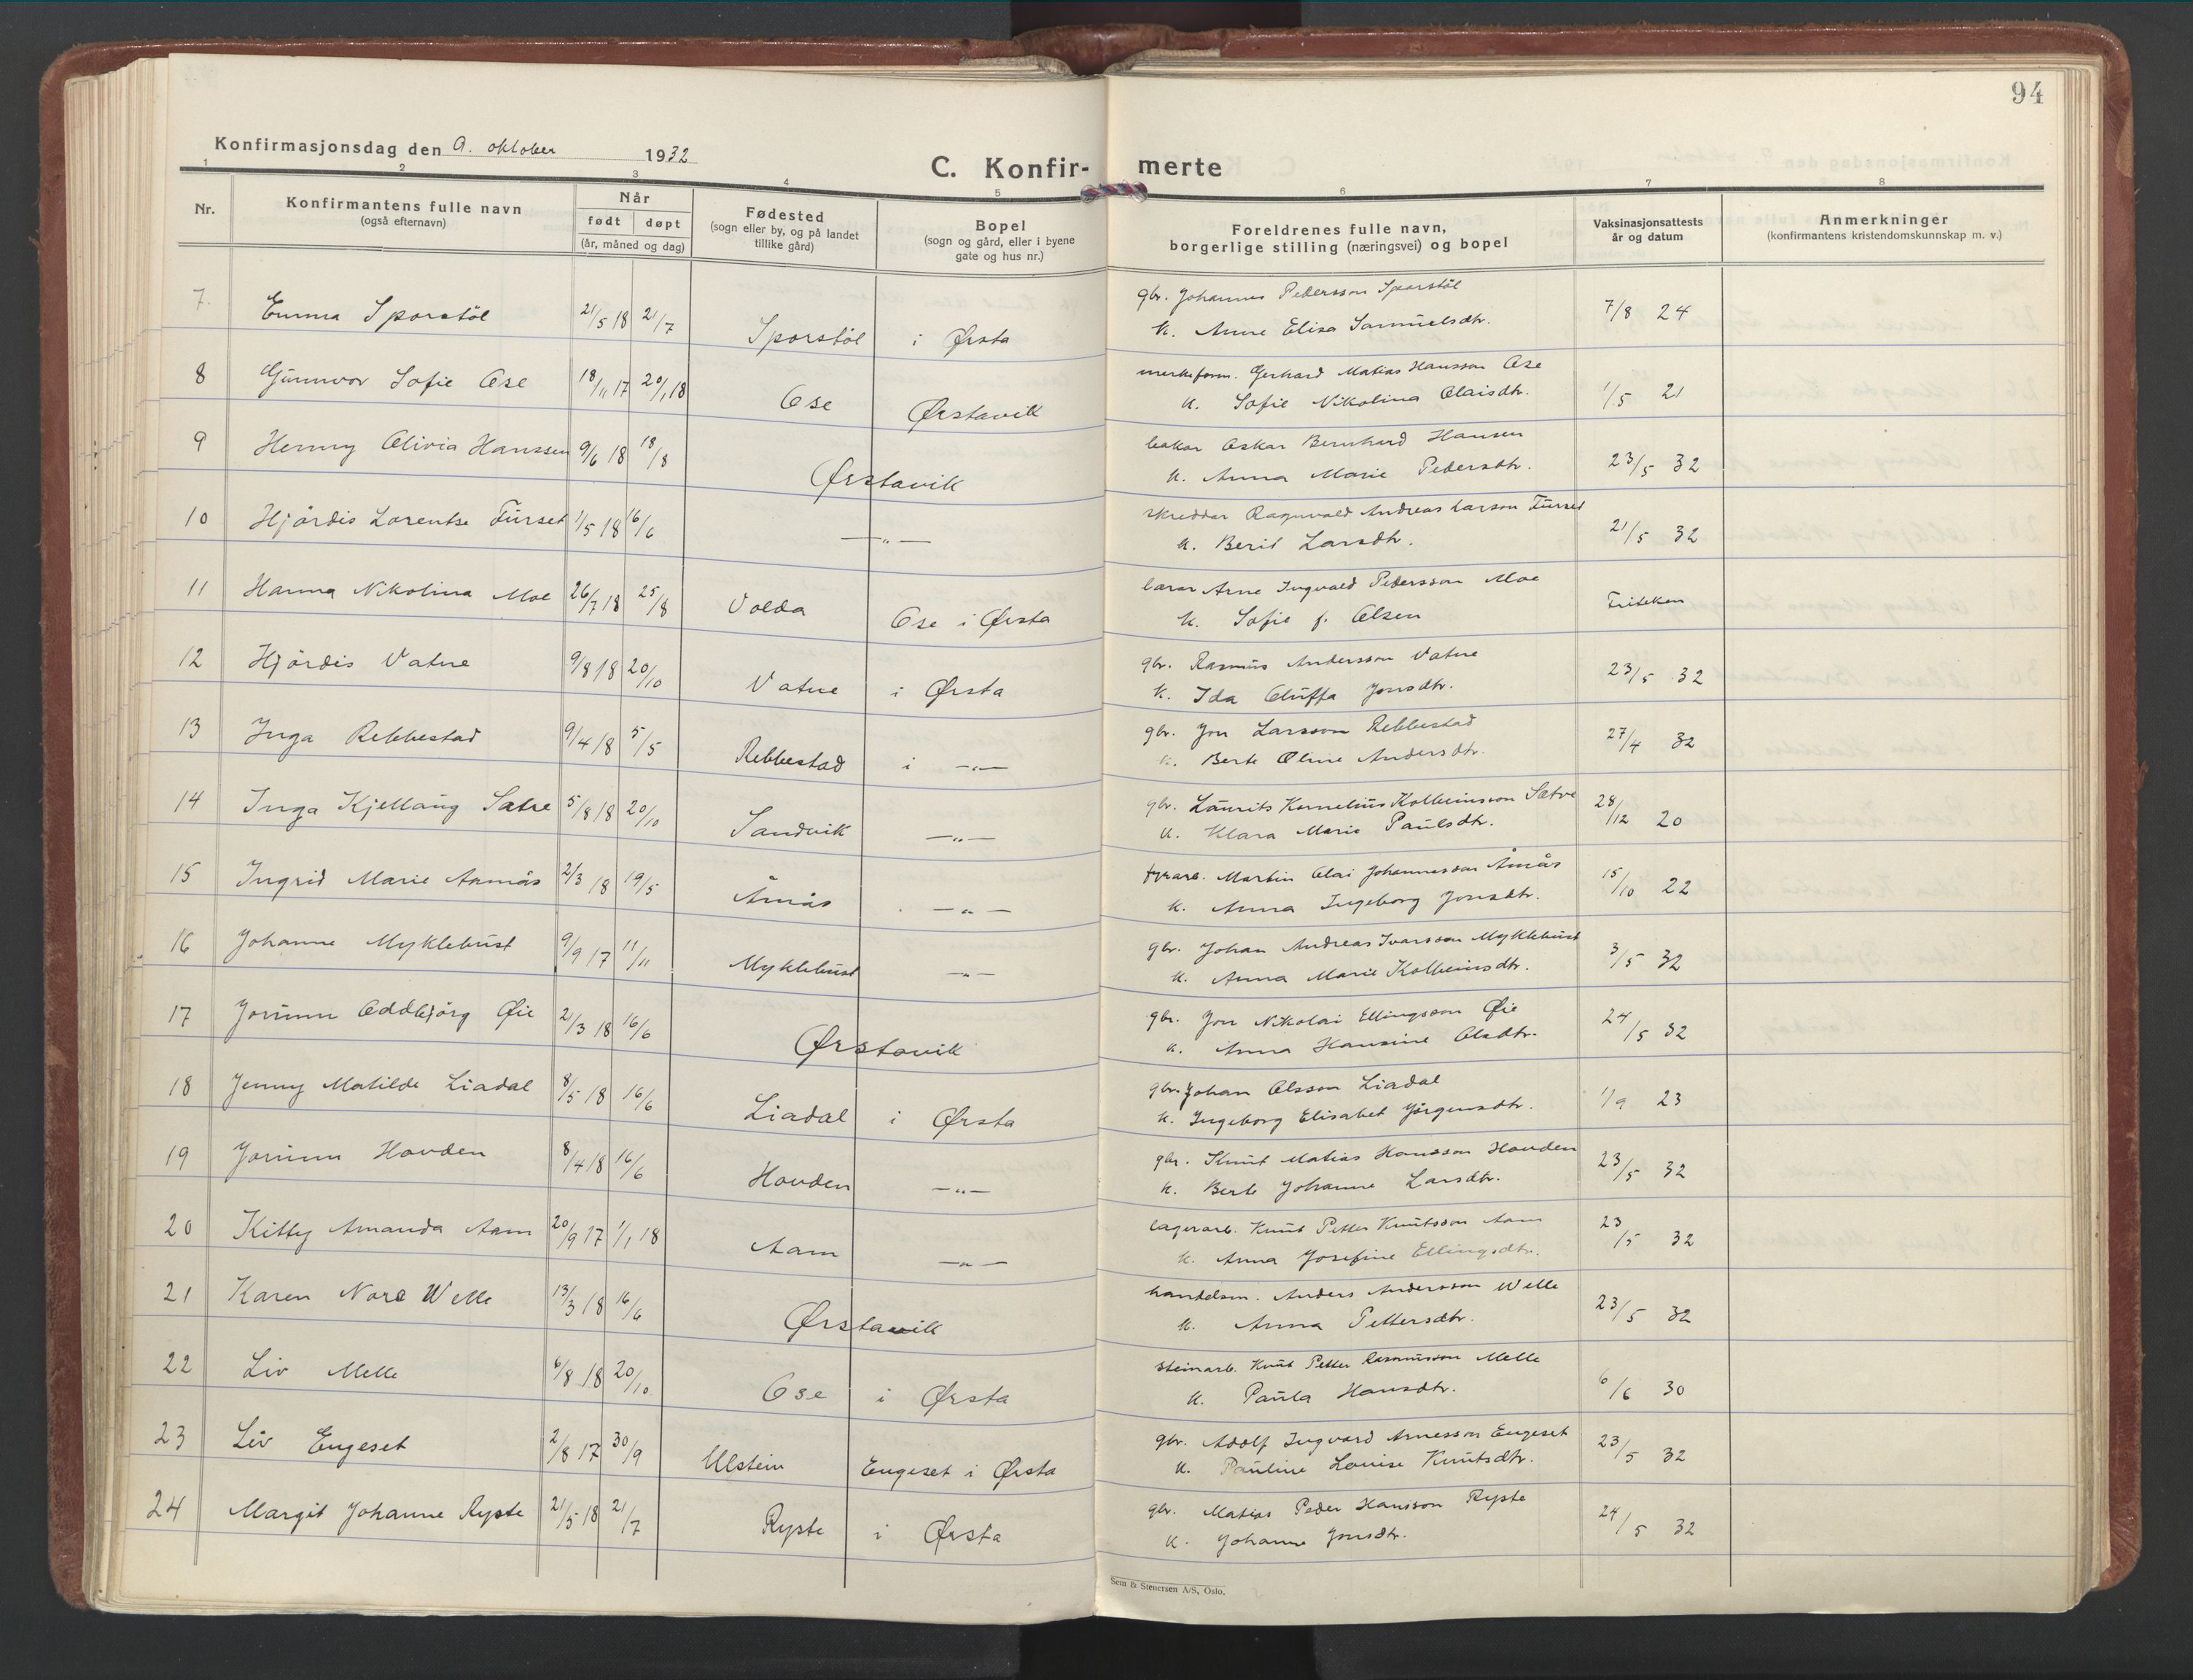 94
Konfirmasjonsdag den 9. oktober 1932
C. Konfir- merte
1 2 3 4 5 6 7 8
Nr. Konfirmantens fulle navn (også efternavn) Når født døpt (år, måned og dag) Fødested (sogn eller by, og på landet tillike gård) Bopel (sogn og gård, eller i byene gate og hus nr.) Foreldrenes fulle navn, borgerlige stilling (næringsvei) og bopel Vaksinasjonsattests år og datum Anmerkninger (konfirmantens kristendomskunnskap m. v.)
7. Emma Sporstöl 21/5 18 21/7 Sporstöl i Ørsta gbr. Johannes Pedersson Sporstöl 7/8 24
k. Anne Elisa Samuelsdtr.
8 Gunnvor Sofie Ose 18/11 17 20/1 18 Ose Ørstavik merkeform. Gerhard Matias Hansson Ose 1/5 21
k. Sofie Nikolina Olaisdtr.
9 Henny Olivia Hanssen 9/6 18 18/8 Ørstavik bakar Oskar Bernhard Hansen 23/5 32
k. Anna Marie Pedersdtr.
10 Hjördis Lorentse Furset 1/5 18 16/6 —„— skreddar Ragnvald Andreas Larson Furset 21/5 32
k. Berit Larsdtr.
11 Hanna Nikolina Moe 26/7 18 25/8 Volda Ose i Ørsta lærar Arne Ingvald Pedersson Moe Friteken
k. Sofie f. Olsen
12 Hjördis Vatne 9/8 18 20/10 Vatne i Ørsta gbr. Rasmus Andersson Vatne 23/5 32
k. Ida Oluffa Jonsdtr.
13 Inga Rebbestad 9/4 18 5/5 Rebbestad i —„— gbr. Jon Larsson Rebbestad 27/4 32
k. Berte Oline Andersdtr.
14 Inga Kjellaug Sætre 5/8 18 20/10 Sandvik —„— gbr. Laurits Kornelius Kolbeinsson Sætre 28/12 20
k. Klara Marie Paulsdtr.
15 Ingrid Marie Aamås 2/3 18 19/5 Åmås —„— Martin Olai Johannesson Åmås 15/10 22
k. Anna Ingeborg Jonsdtr.
16 Johanne Myklebust 9/9 17 11/11 Myklebust —„— gbr. Johan Andreas Ivarsson Myklebust 3/5 32
k. Anna Marie Kolbeinsdtr.
17 Jorunn Oddbjörg Øie 2/3 18 16/6 Ørstavik gbr. Jon Nikolai Ellingsson Øie 24/5 32
k. Anna Hansine Olsdtr.
18 Jenny Matilde Liadal 8/5 18 16/6 Liadal i Ørsta gbr. Johan Olsson Liadal 1/9 23
k. Ingeborg Elisabet Jörgensdtr.
19 Jorunn Hovden 8/4 18 16/6 Hovden —„— gbr. Knut Matias Hansson Hovden 23/5 32
k. Berte Johanne Larsdtr.
20 Kitty Amanda Aam 20/9 17 1/1 18 Aam —„— lagerarb. Knut Petter Knutsson Aam 23/5 32
k. Anna Josefine Ellingsdtr.
21 Karen Nora Welle 13/3 18 16/6 Ørstavik handelsm. Anders Andersson Welle 23/5 32
k. Anna Pettersdtr.
22 Liv Melle 6/8 18 20/10 Ose i Ørsta steinarb. Knut Petter Rasmusson Melle 6/6 30
k. Paula Hansdtr.
23 Liv Engeset 2/8 17 30/9 Ulstein Engeset i Ørsta gbr. Adolf Ingvard Arnesson Engeset 23/5 32
k. Pauline Lovise Knutsdtr.
24 Margit Johanne Ryste 21/5 18 21/7 Ryste i Ørsta gbr. Matias Peder Hansson Ryste 24/5 32
k. Johanne Jonsdtr.
Sem & Stenersen A/S, Oslo.